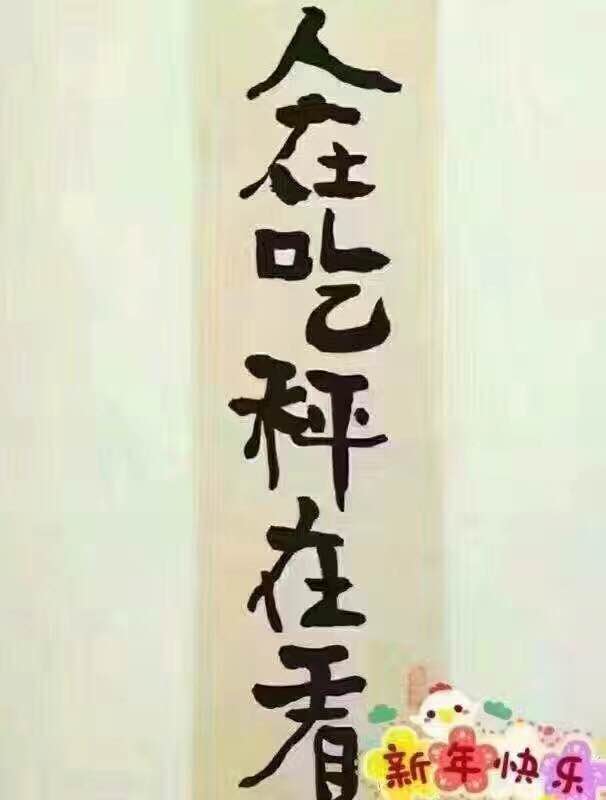 人在吃秤在看
新年快乐